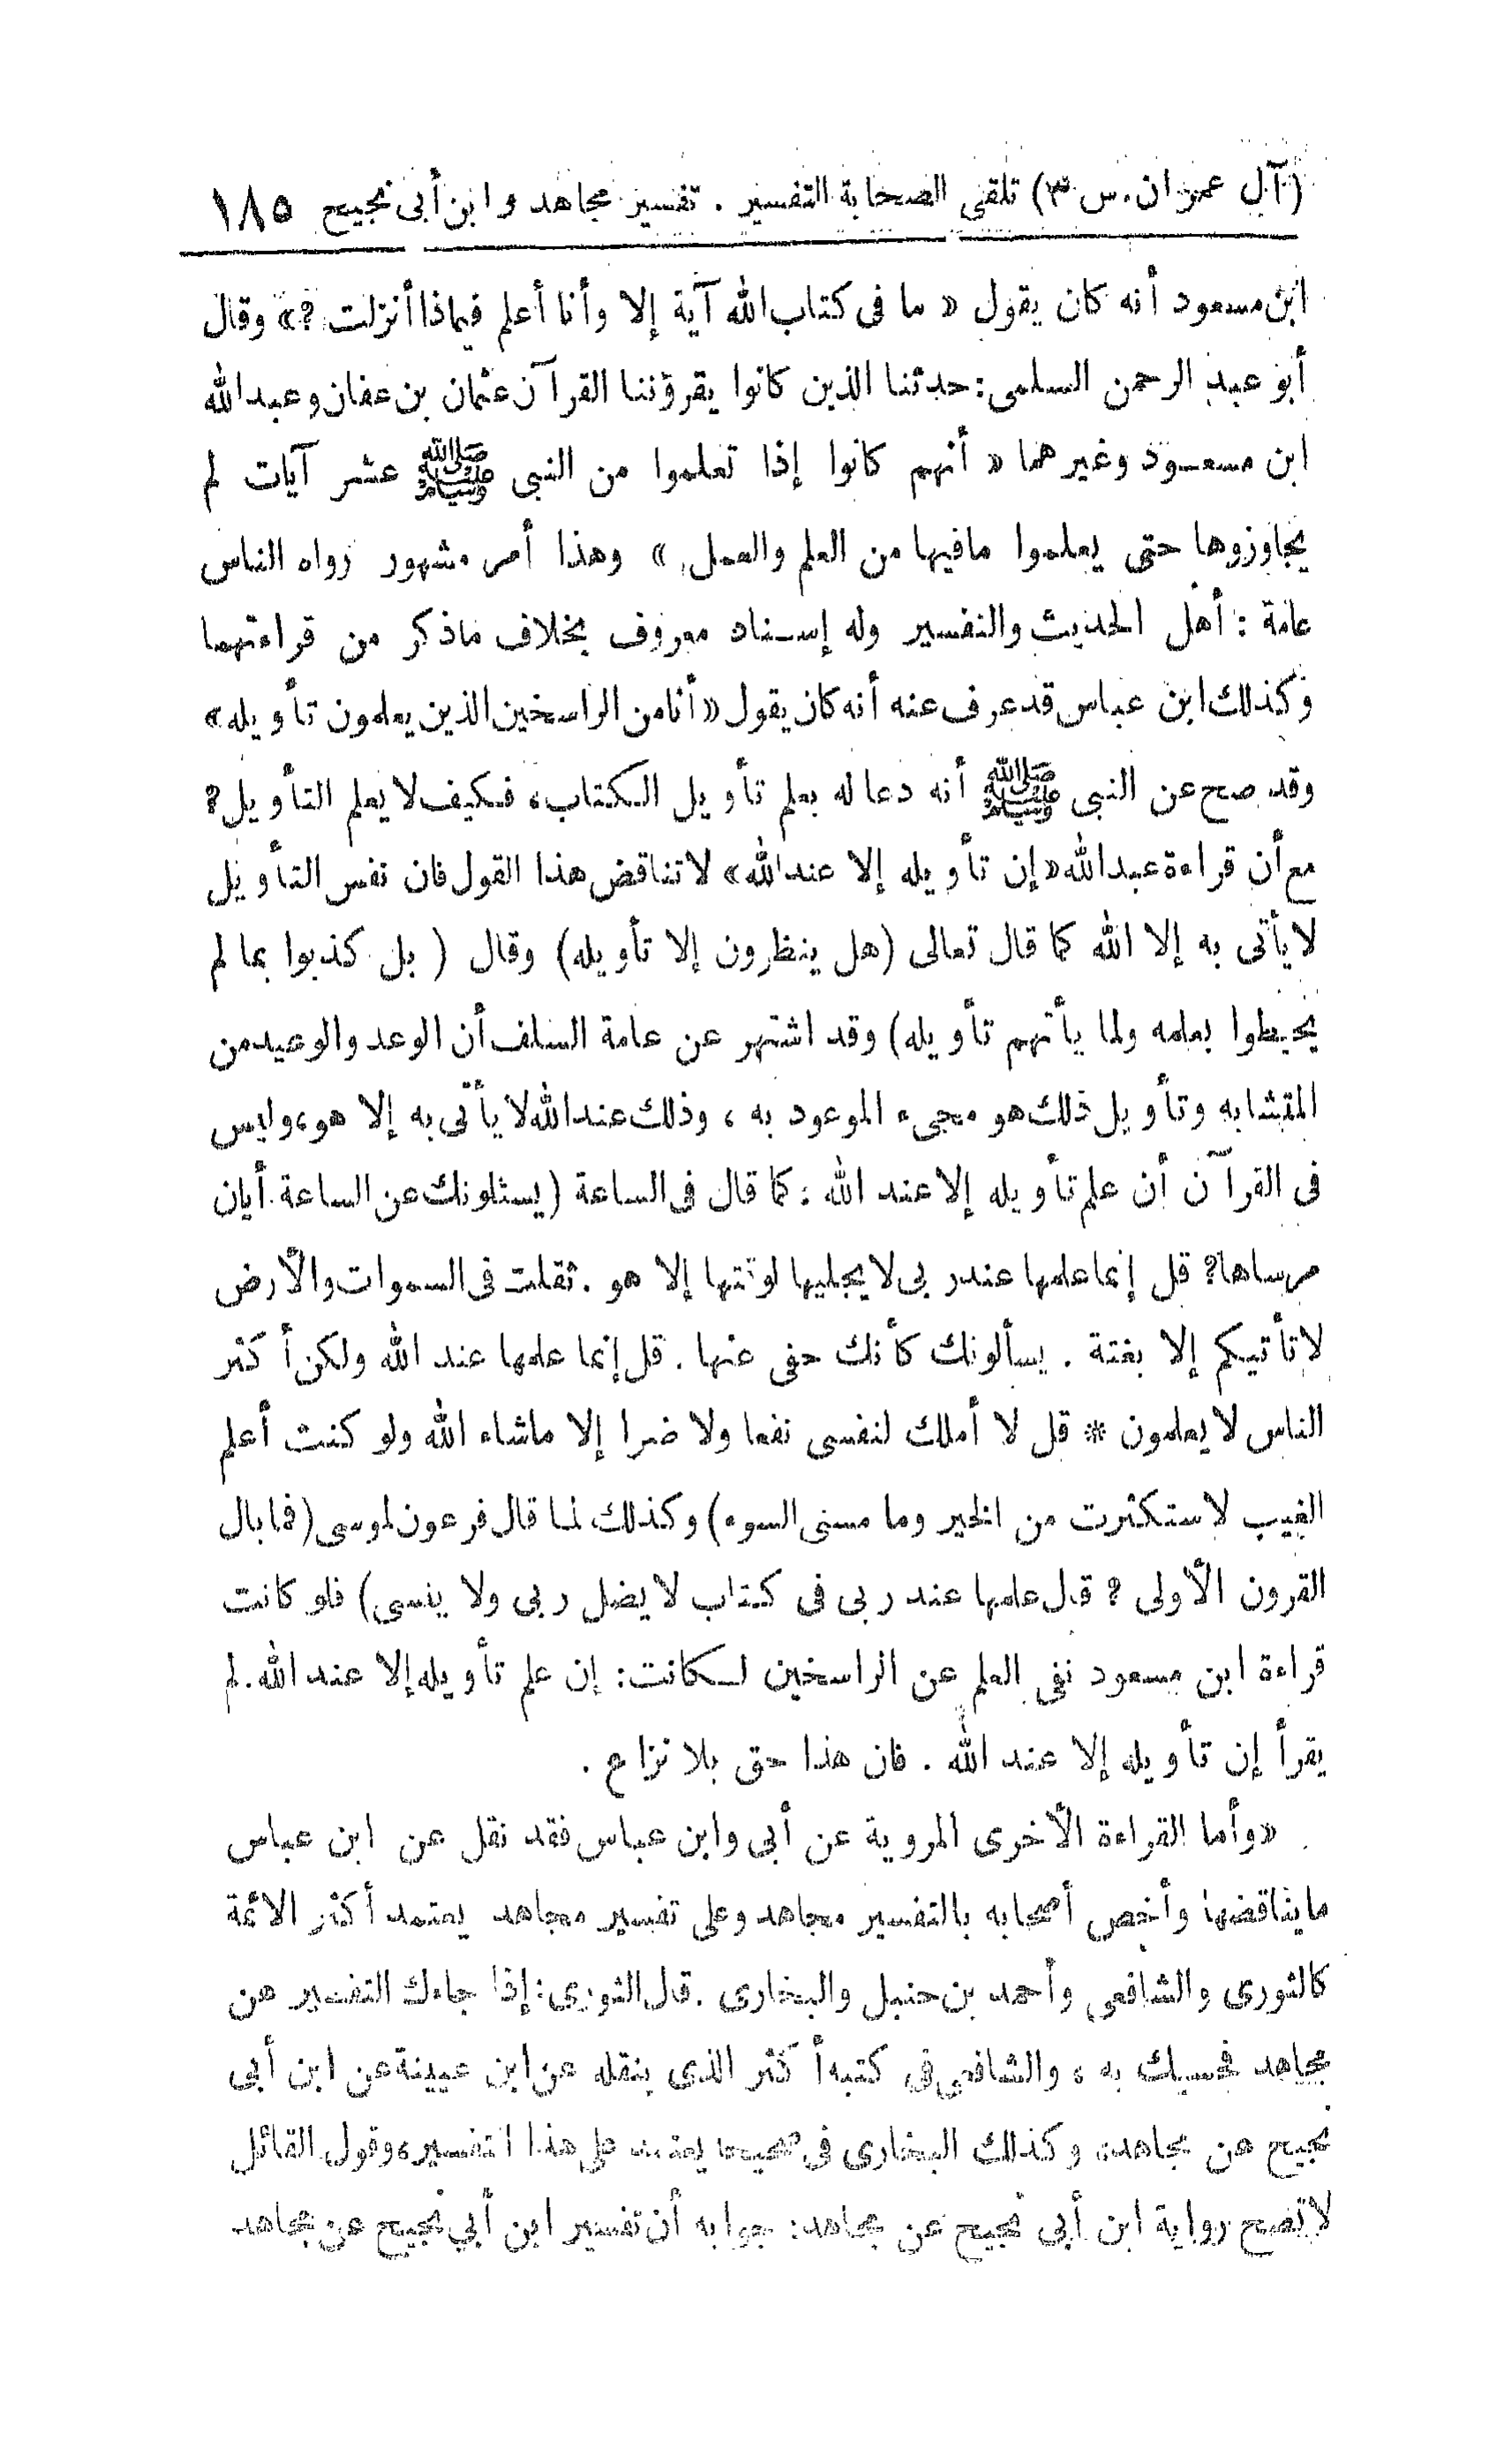 (آل عمران.س ٣) تلقى الصحابة التفسير . تفسير مجاهد وابن أبى نجيح ١٨٥
ابن مسعود أنه كان يقول « ما فى كتاب الله آية إلا وأنا أعلم فيماذا أنزلت ?» وقال
أبو عبد الرحمن السلمى : حدثنا الذين كانوا يقرؤننا القرآن عثمان بن عفان وعبد الله
ابن مسعود وغيرهما « أنهم كانوا إذا تعلموا من النبى ﷺ عشر آيات لم
يجاوزوها حتى يعلموا مافيها من العلم والعمل » وهذا أمر مشهور رواه الناس
عامة : أهل الحديث والتفسير وله إسناد معروف بخلاف ماذكر من قراءتهما
وكذلك ابن عباس قد عرف عنه أنه كان يقول « أنا من الراسخين الذين يعلمون تأويله»
وقد صح عن النبى ﷺ أنه دعا له بعلم تأويل الكتاب، فكيف لا يعلم التأويل ?
مع أن قراءة عبد الله « إن تأويله إلا عند الله» لا تناقض هذا القول فان نفس التأويل
لا يأتى به إلا الله كما قال تعالى (هل ينظرون إلا تأويله) وقال ( بل كذبوا بما لم
يحيطوا بعلمه ولما يأتهم تأويله) وقد اشتهر عن عامة السلف أن الوعد والوعيد من
المتشابه وتأويل ذلك هو مجىء الموعود به ، وذلك عند الله لا يأتى به إلا هو، وليس
فى القرآن أن علم تأويله إلا عند الله : كما قال فى الساعة (يسئلونك عن الساعة أيان
مرساها? قل إنما علمها عند ربى لا يجليها لوقتها إلا هو . ثقلت فى السموات والأرض
لا تأتيكم إلا بغتة . يسألونك كأنك حفى عنها . قل إنما علمها عند الله ولكن أكثر
الناس لا يعلمون * قل لا أملك لنفسى نفعا ولا ضرا إلا ماشاء الله ولو كنت أعلم
الغيب لاستكثرت من الخير وما مسنى السوء) وكذلك لما قال فرعون لموسى (فما بال
القرون الأولى ? قال علمها عند ربى فى كتاب لا يضل ربى ولا ينسى) فلو كانت
قراءة ابن مسعود نفى العلم عن الراسخين لكانت: إن علم تأويله إلا عند الله. لم
يقرأ إن تأويله إلا عند الله . فان هذا حق بلا نزاع .
«وأما القراءة الأخرى المروية عن أبى وابن عباس فقد نقل عن ابن عباس
ما يناقضها وأخص أصحابه بالتفسير مجاهد وعلى تفسير مجاهد يعتمد أكثر الأئمة
كالثورى والشافعى وأحمد بن حنبل والبخارى . قال الثورى : إذا جاءك التفسير من
مجاهد فحسبك به ، والشافعى فى كتبه أكثر الذى ينقله عن ابن عيينة عن ابن أبى
نجيح عن مجاهد، وكذلك البخارى فى صحيحه يعتمد على هذا التفسير، وقول القائل
لا تصح رواية ابن أبى نجيح عن مجاهد: جوابه أن تفسير ابن أبي نجيح عن مجاهد